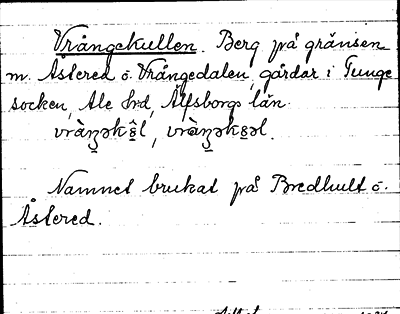 Vrångekullen. Berg på gränsen
m. Åstered o. Vrångedalen, gårdar i Tunge
socken, Ale hrd, Älfsborgs län.
vràŋəkŭ̂l, vràŋəkŭəl.
Namnet brukat på Bredhult o.
Åstered.